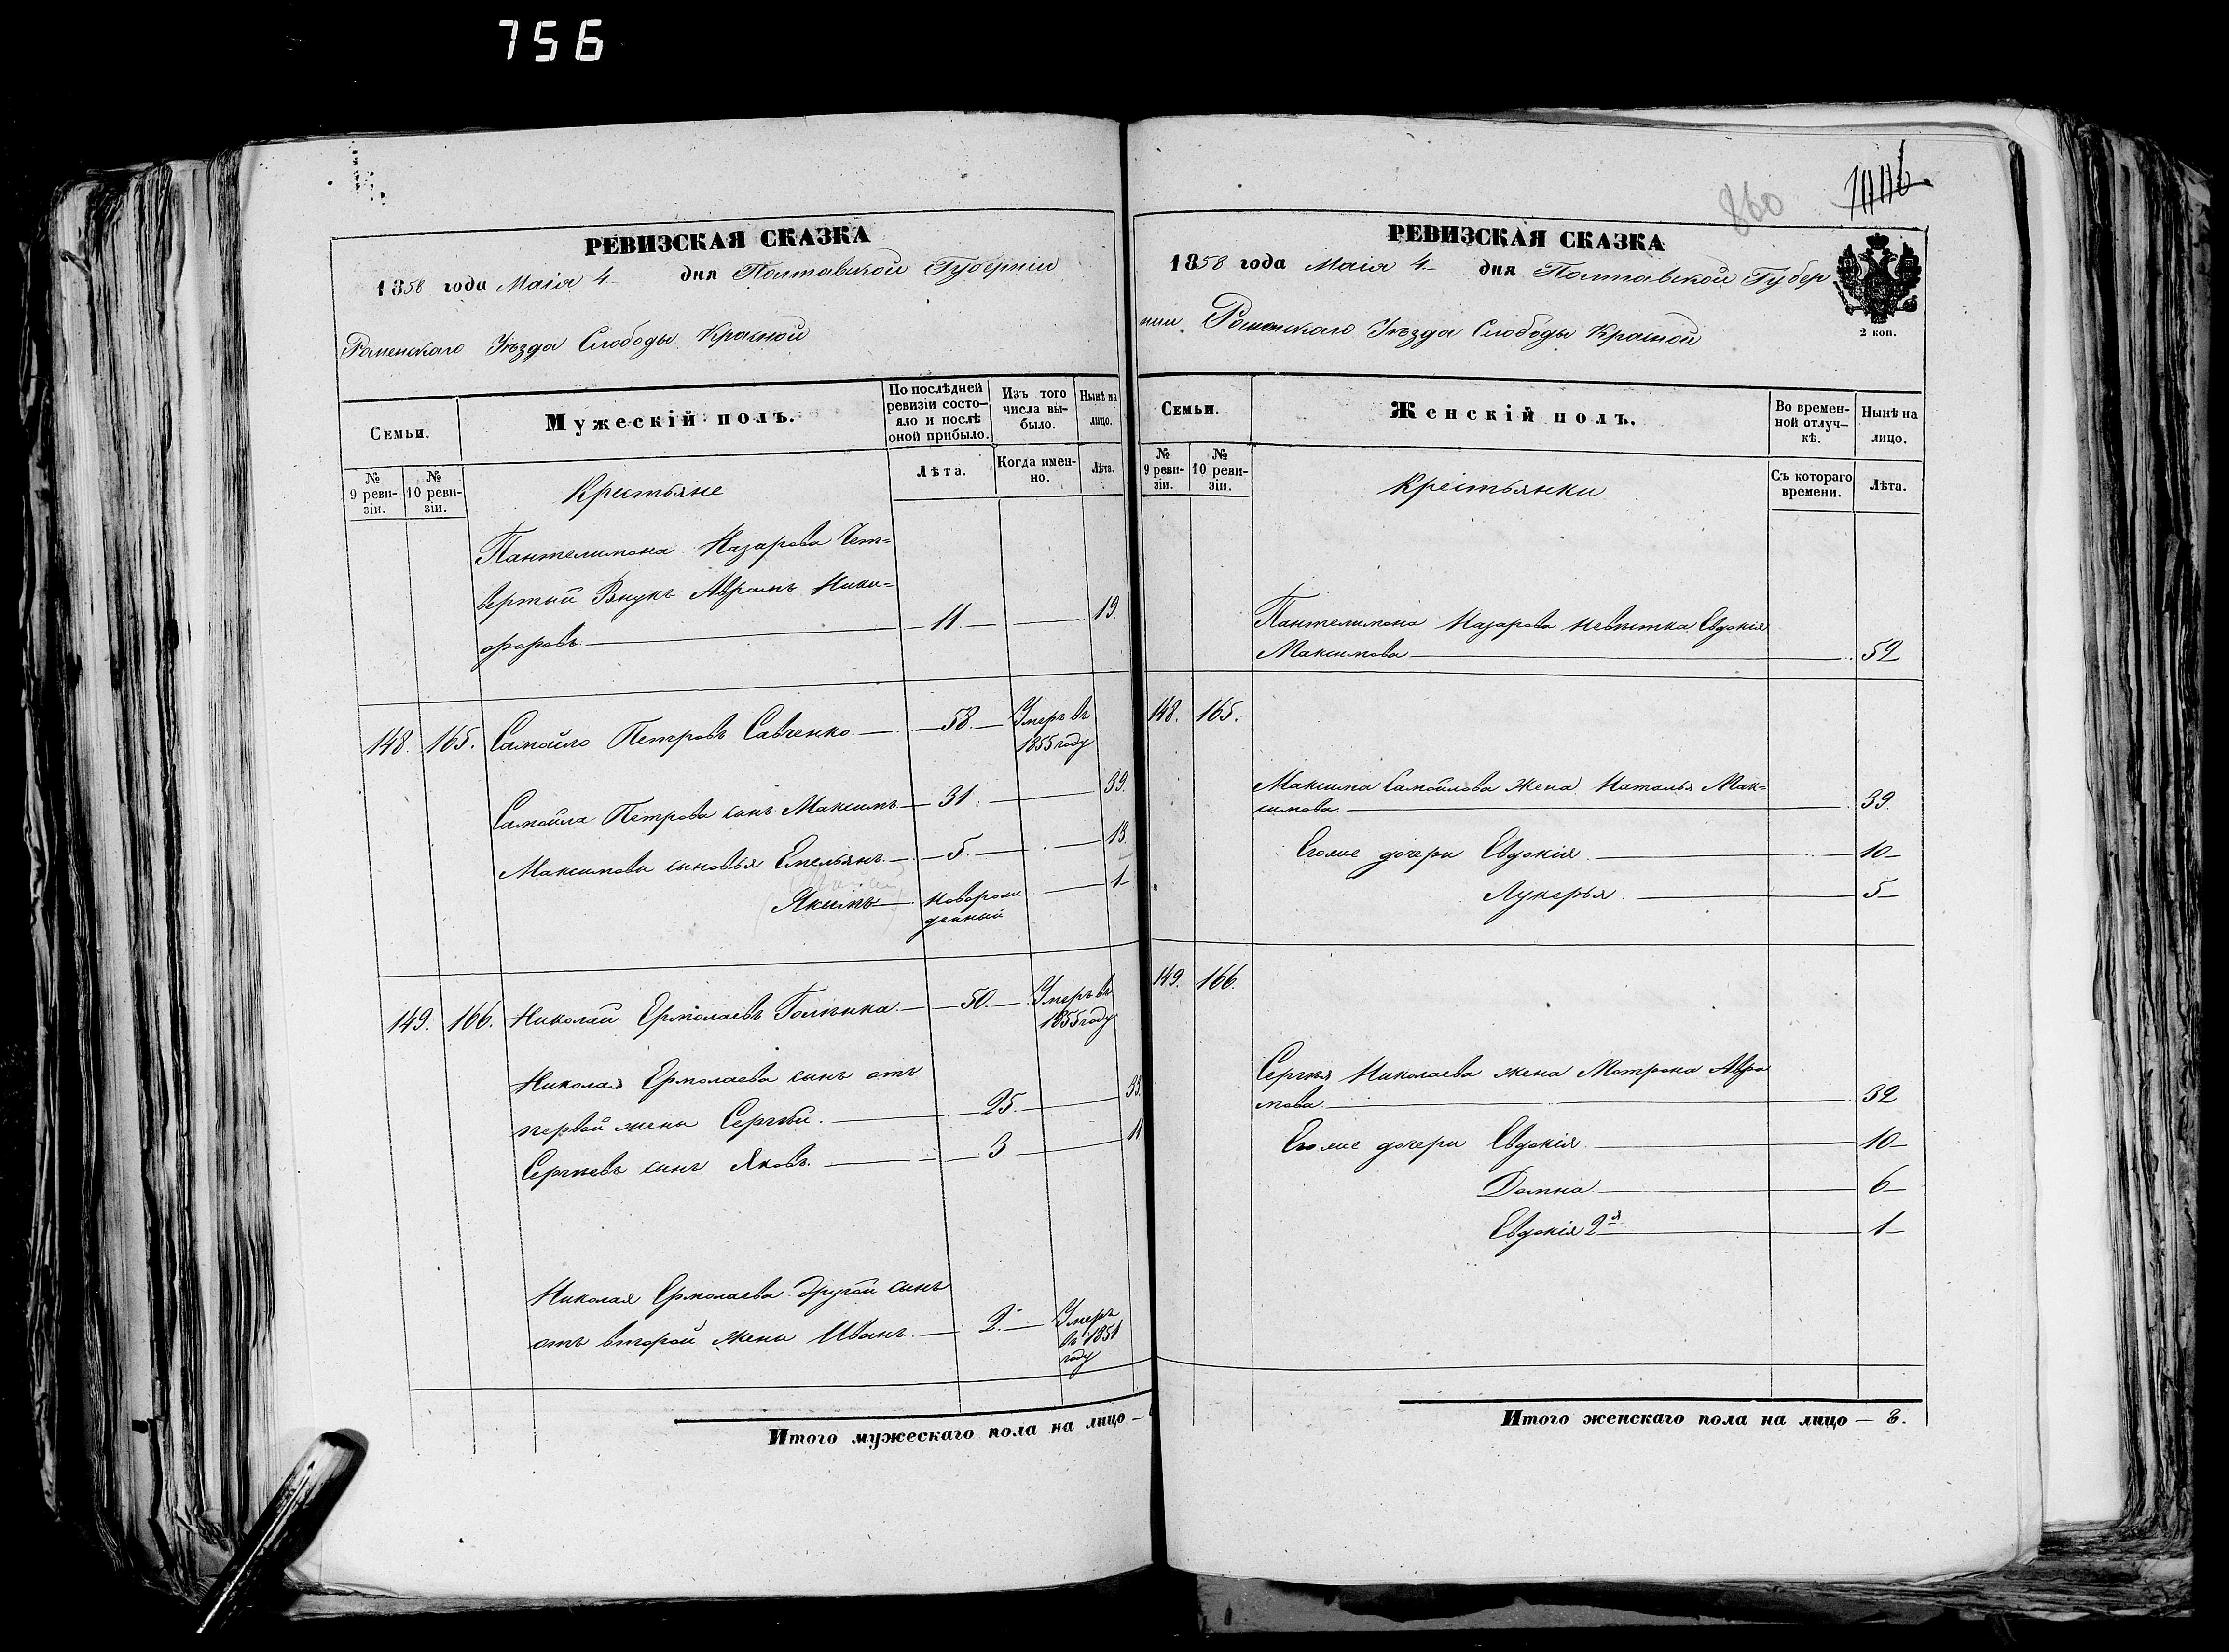 756
РЕВИЗСКАЯ СКАЗКА
1858 года Маія 4 дня Полтавской Губерніи
Роменскаго Уѣзда Слободы Красной
Семьи.
Мужескій полъ.
По послѣдней ревизіи состо-
яло и послѣ
оной прибыло.
Изъ того
числа вы-
было.
Нынѣ на
лицо.
№
9 реви-
зіи.
№
10 реви-
зіи.
Крестьяне
Лѣта.
Когда имен-
но.
Лѣта.
Пантелимона Назарова Чет=
вертый Внукъ Аврамъ Ники=
форовъ — 11. — 19.
148. 165. Самойло Петровъ Савченко — 58. — Умеръ въ
1855 году
Самойла Петрова сынъ Максимъ — 31. — 39.
Максимови сыновья Емельянъ — 5. — 13
Якимъ — Новорож
денный — 1
149. 166. Николай Ермолаевъ Голенка — 50. — Умеръ въ
1855 году
Николая Ермолаева сынъ отъ
первой жены Сергѣй. — 25. — 33.
Сергѣевъ сынъ Яковъ. — 3. — 11
Николая Ермолаева другой сынъ
отъ второй жены Иванъ. — 2. — Умеръ
въ 1851
году
Итого мужескаго пола на лицо —
860
РЕВИЗСКАЯ СКАЗКА
1858 года Маія 4 дня Полтавской Губер
ніи Роменскаго Уѣзда Слободы Красной
2 коп.
Семьи.
Женскій полъ.
Во времен-
ной отлуч-
кѣ.
Нынѣ на
лицо.
№
9 реви-
зіи.
№
10 реви-
зіи.
Крестьянки
Съ котораго
времени.
Лѣта.
Пантелимона Назарова невѣстка Евдокія
Максимова — 52
148. 165.
Максима Самойлова жена Наталья Мак=
симова — 39.
Его же дочери Евдокія — 10
Лукерья — 5
149. 166.
Сергѣя Николаева жена Матрона Авра
мова. — 32
Его же дочери Евдокія — 10
Домна — 6
Евдокія 2я — 1
Итого женскаго пола на лицо — 8.